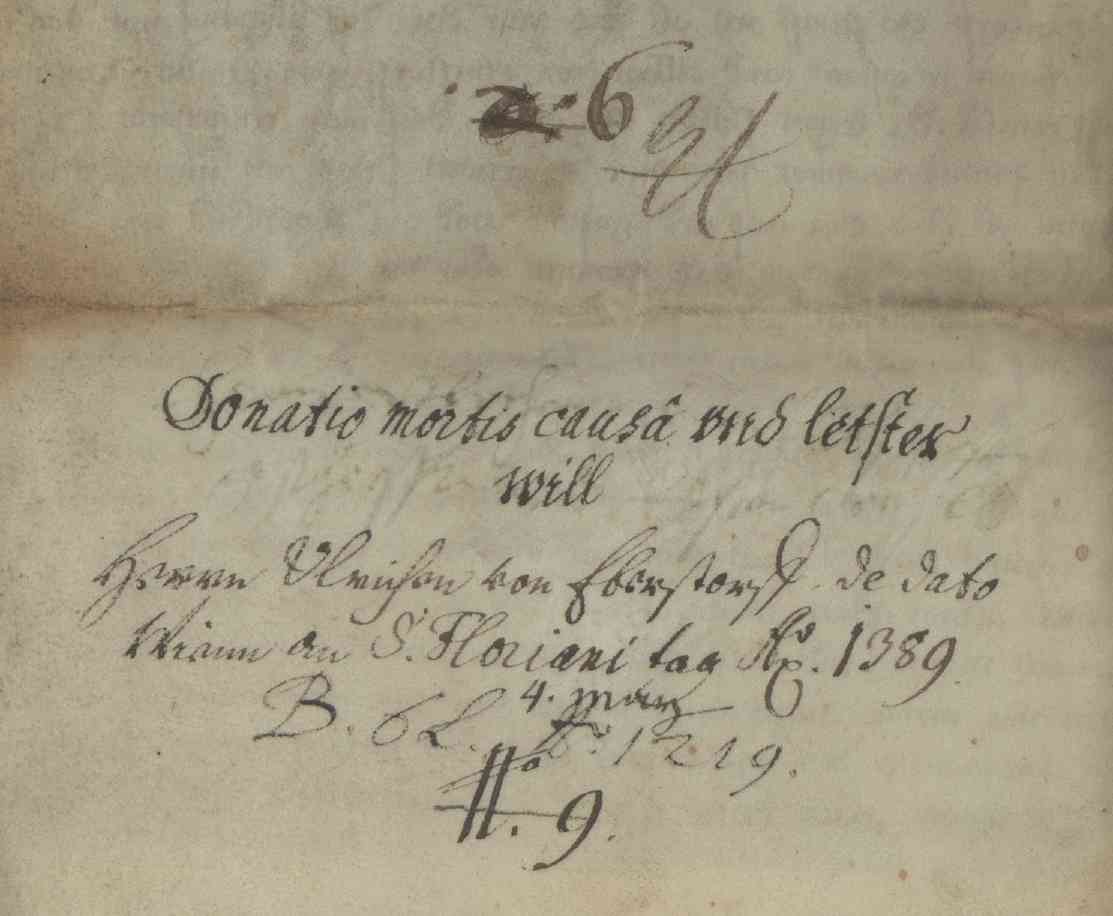 6
Donatio mortis causâ vnd letster
will
Herrn Ulrichen von Eberstorff de dato
Wienn an S. Floriani tag Ao. 1389
4. May
B. 62. No. 1219.
No. 9.